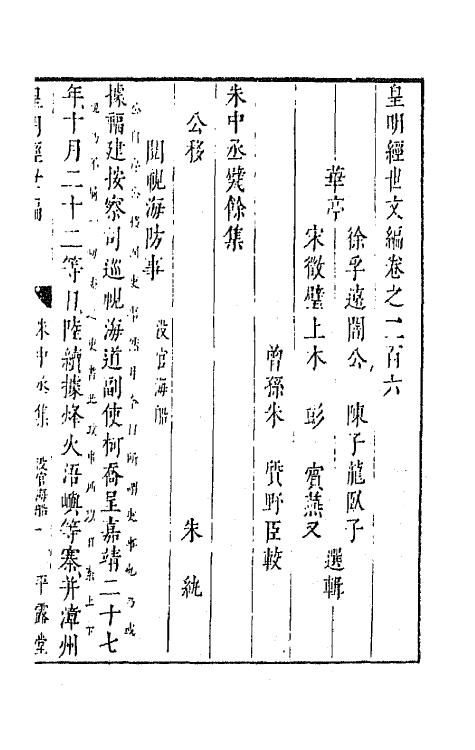 皇明經世文編卷之二百六
華亭
徐孚遠闇公 陳子龍臥子
宋徵璧上木 彭 賓燕又
選輯
曾孫朱 質野臣較
朱中丞甓餘集
公移 朱 紈
閱視海防事 沒官海船
據福建按察司巡視海道副使柯喬呈嘉靖二十七
年十月二十二等日陸續據烽火浯嶼等寨并漳州
皇明經世文編
朱中丞集 沒官海船 一 平露堂